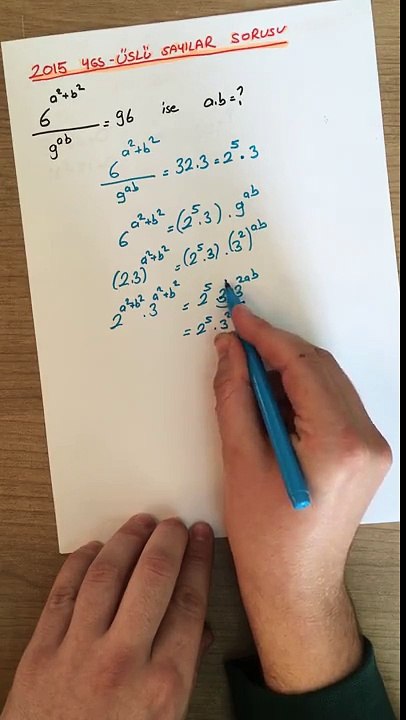 2015 YGS-ÜSLÜ SAYILAR SORUSU
6^(a²+b²) / 9^(ab) = 96 ise a.b=?
6^(a²+b²) / 9^(ab) = 32.3 = 2⁵.3
6^(a²+b²) = (2⁵.3).9^(ab)
(2.3)^(a²+b²) = (2⁵.3).(3²)^(ab)
2^(a²+b²).3^(a²+b²) = 2⁵.
= 2⁵.3